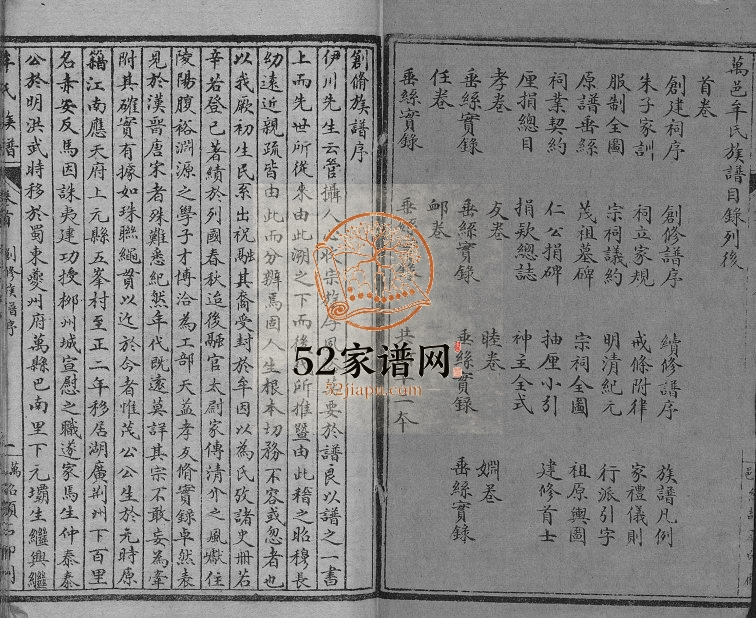 萬邑牟氏族譜目錄列後
首卷
創建祠序 創修譜序 續修譜序 族譜凡例
朱子家訓 祠立家規 戒條附律 家禮儀則
服制全圖 宗祠議約 明清紀元 行派引字
原譜垂絲 茂祖墓碑 宗祠全圖 祖原輿圖
祠業契約 仁公捐碑 抽厘小引 建修首士
厘捐總目 捐欵總誌 神主全式
孝卷 友卷 睦卷 婣卷
垂絲實錄 垂絲實錄 垂絲實錄 垂絲實錄
任卷 卹卷
垂絲實錄 垂絲實錄 本
創脩族譜序
伊川先生云管攝人 宗族 風 要於譜良以譜之一書
上而先世所從來由此溯之下而後 所推暨由此稽之昭穆長
幼遠近親疏皆由此而分辦焉固人生根本切務不容或忽者也
以我厥初生民系出祝融其裔受封於牟因以為氏攷諸史册若
辛若登已著績於列國春秋迨後融官太尉家傳清介之風巘住
陵陽腹裕淵源之學子才博洽為工部天益孝友脩實錄卓然表
見於漢晋唐宋者殊難悉紀然年代既遠莫詳其宗不敢妄為牽
附其確實有據如珠聯繩貫以近於今者惟茂公公生於元時原
籍江南應天府上元縣五峯村至正二年移居湖廣荆州下百里
名赤安反馬因誅夷建功授柳州城宣慰之職遂家馬生仲泰泰
公於明洪武時移於蜀東夔州府萬縣巴南里下元壩生繼興繼
牟氏族譜 卷首 創修族譜序 一
52家谱网
52jiapu.com